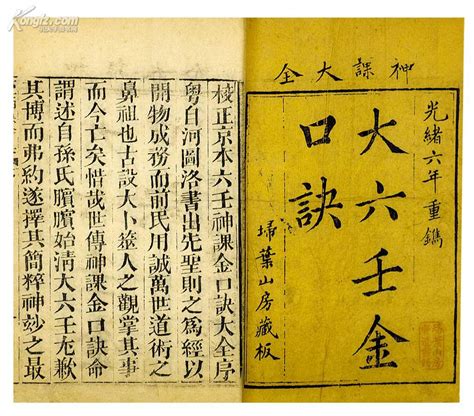 神課大全
光緒六年重鐫
大六壬金
口訣
埽葉山房藏板
校正京本六壬神課金口訣大全序
粵自河圖洛書出先聖則之爲經以
開物成務而前民用誠萬世道術之
鼻祖也古設大卜簭人之觀掌其事
而今亡矣惜哉世傳神課金口訣命
謂述自孫氏臏臏始清大六壬尤歉
其博而弗約遂擇其簡粹神妙之最
Kongfz.com